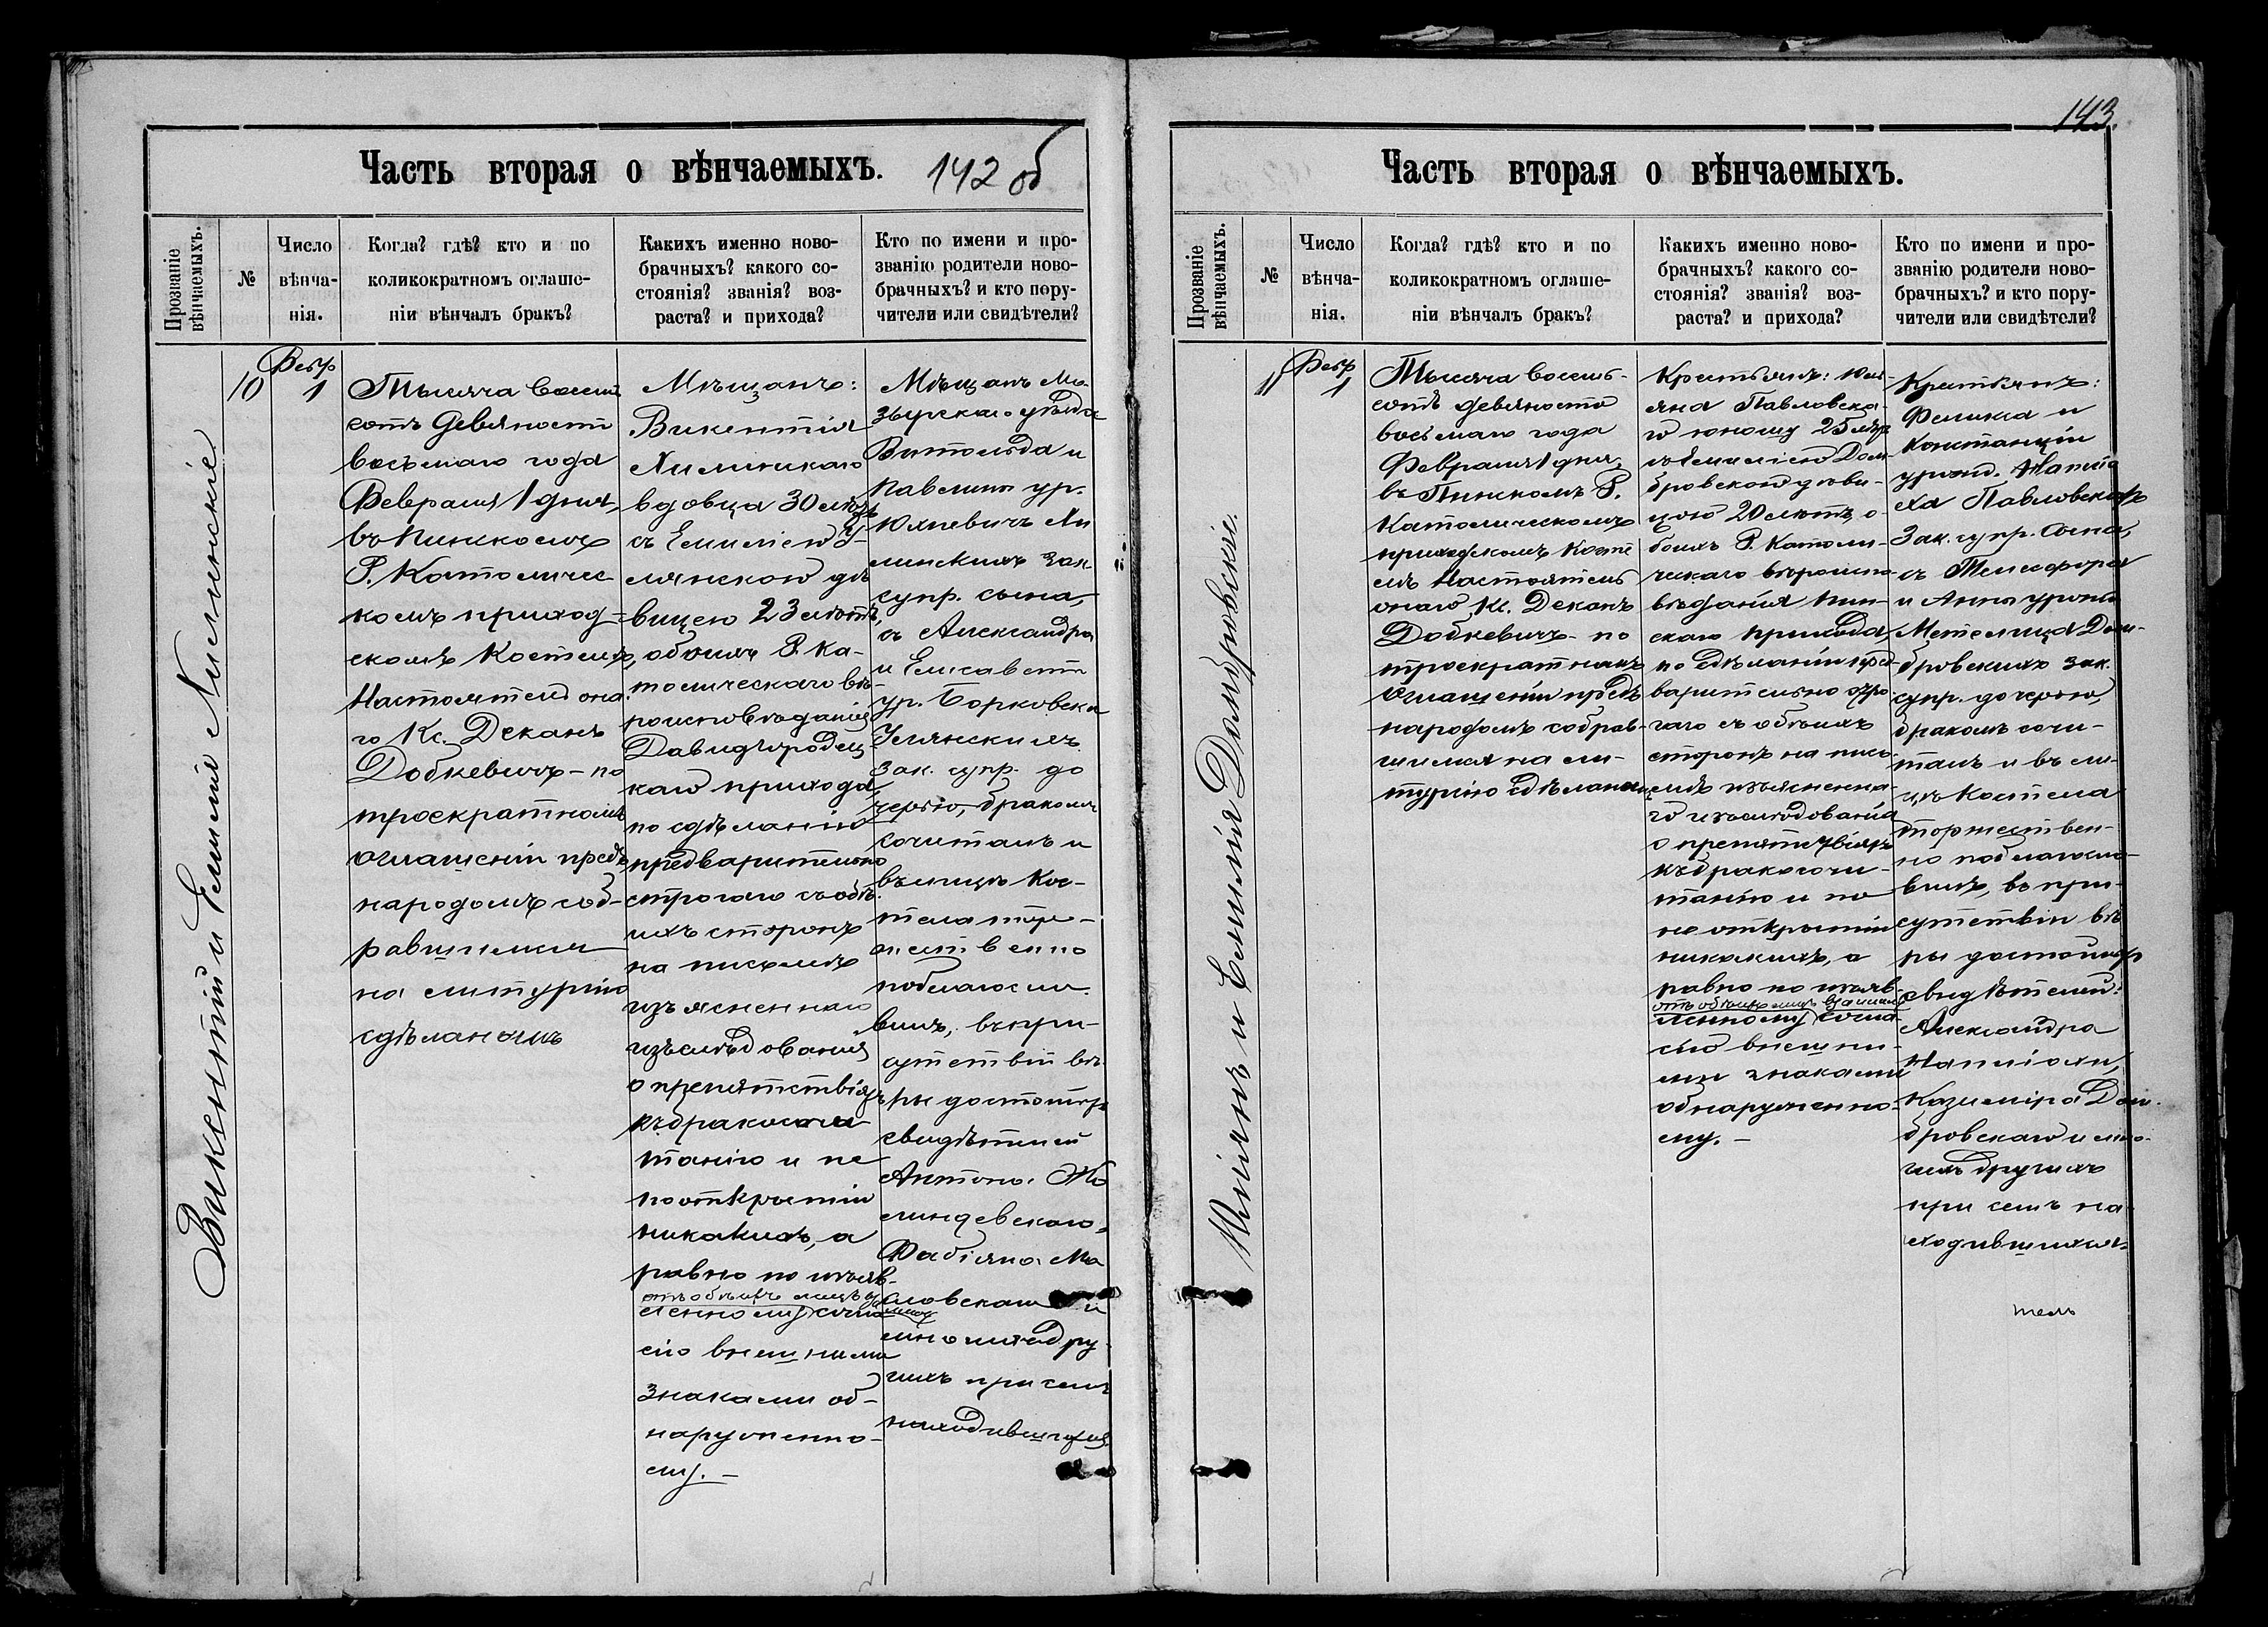 143.
Часть вторая о вѣнчаемыхъ. 142 об
Прозваніе
вѣнчаемыхъ.
№
Число
вѣнча-
нія.
Когда? гдѣ? кто и по
коликократномъ оглаше-
ніи вѣнчалъ бракъ?
Какихъ именно ново-
брачныхъ? какого со-
стоянія? званія? воз-
раста? и прихода?
Кто по имени и про-
званію родители ново-
брачныхъ? и кто пору-
чители или свидѣтели?
Викентій и Емилія
10
Февр
1
Тысяча восемь
сотъ девяносто
восьмаго года
Февраля 1 дня,
въ Пинскомъ
Р. Католичес
комъ приход-
скомъ Костелѣ
Настоятель она
го Кс. Деканъ
Добкевичъ - по
троекратномъ
оглашеніи предъ
народомъ соб-
равшимся
на литургію
сдѣланномъ
Мѣщанъ:
Викентія
вдовца 30 лѣтъ
съ Емиліею У-
лянскою дѣ
вицею 23 лѣтъ,
обоихъ Р. Ка-
толическаго вѣ-
роисповѣданія
Давидгородец-
каго прихода,
по сдѣланію
предварительно
строгаго съ обѣ
ихъ сторонъ
на письмѣ
изъясненнаго
изъслѣдованія
о препятствіяхъ
къ бракосоче
танію и не
по открытіи
никакихъ, а
равно по изъяв-
отъ обѣихъ лицъ
ленному согла
сію внешними
знаками об-
наруженно-
му. -
Мѣщанъ Мо-
зырскаго уѣзда
Витольда и
Павелины ур.
зак.
супр. сына,
съ Александра
и Елисаветы
ур. Борковска
Улянскихъ
зак. супр. до
черью, бракомъ
сочиталъ и
въ лицѣ Кос-
тела тор-
жественно
поблагосло
вилъ, въ при-
сутствіи вѣ-
ры достойныхъ
свидѣтелей
Антона
Фабіяна Ма
словскаго и
многихъ дру-
гихъ при семъ
находившихся
Часть вторая о вѣнчаемыхъ.
Прозваніе
вѣнчаемыхъ.
№
Число
вѣнча-
нія.
Когда? гдѣ? кто и по
коликократномъ оглаше-
ніи вѣнчалъ бракъ?
Какихъ именно ново-
брачныхъ? какого со-
стоянія? званія? воз-
раста? и прихода?
Кто по имени и про-
званію родители ново-
брачныхъ? и кто пору-
чители или свидѣтели?
Юліянъ и Емилія Домбровскіе.
11
Февр
1
Тысяча восемь-
сотъ девяносто
восьмаго года
Февраля 1 дня,
въ Пинскомъ Р.
Католическомъ
приходскомъ Косте
лѣ Настоятель
онаго Кс. Деканъ
Добкевичъ - по
троекратномъ
оглашеніи предъ
народомъ собрав-
шимся на ли-
тургію сдѣланномъ
Крестьянъ: Юлі-
яна Павловска-
го юношу 25 лѣтъ
съ Емиліею Дом
бровскою дѣви-
цею 20 лѣтъ, о-
боихъ Р. Католи-
ческаго вѣроиспо-
вѣданія Пин-
скаго прихода,
по сдѣланіи пред-
варительно стро
гаго съ обѣихъ
сторонъ на пись-
мѣ изъясненна-
го изъслѣдованія
о препятствіяхъ
къ бракосоче-
танію и по
не открытіи
никакихъ, а
равно по изъяв-
отъ обѣихъ лицъ взаимно
ленному согла-
сію внешни-
ми знаками
обнаруженно-
му. -
Крестьянъ:
Феликса и
Констанціи
урожд.
Павловскихъ
Зак. супр. сына,
съ Телесфора
и Анны урожд
Метелица Дом-
бровскихъ зак.
супр. дочерью,
бракомъ сочи-
талъ и въ ли-
цѣ Костела
торжествен-
но поблагосло-
вилъ, въ при-
сутствіи вѣ
ры достойныхъ
свидѣтелей:
Александра
Казиміра Дом-
бровскаго и мно-
гихъ другихъ
при семъ на-
ходившихся